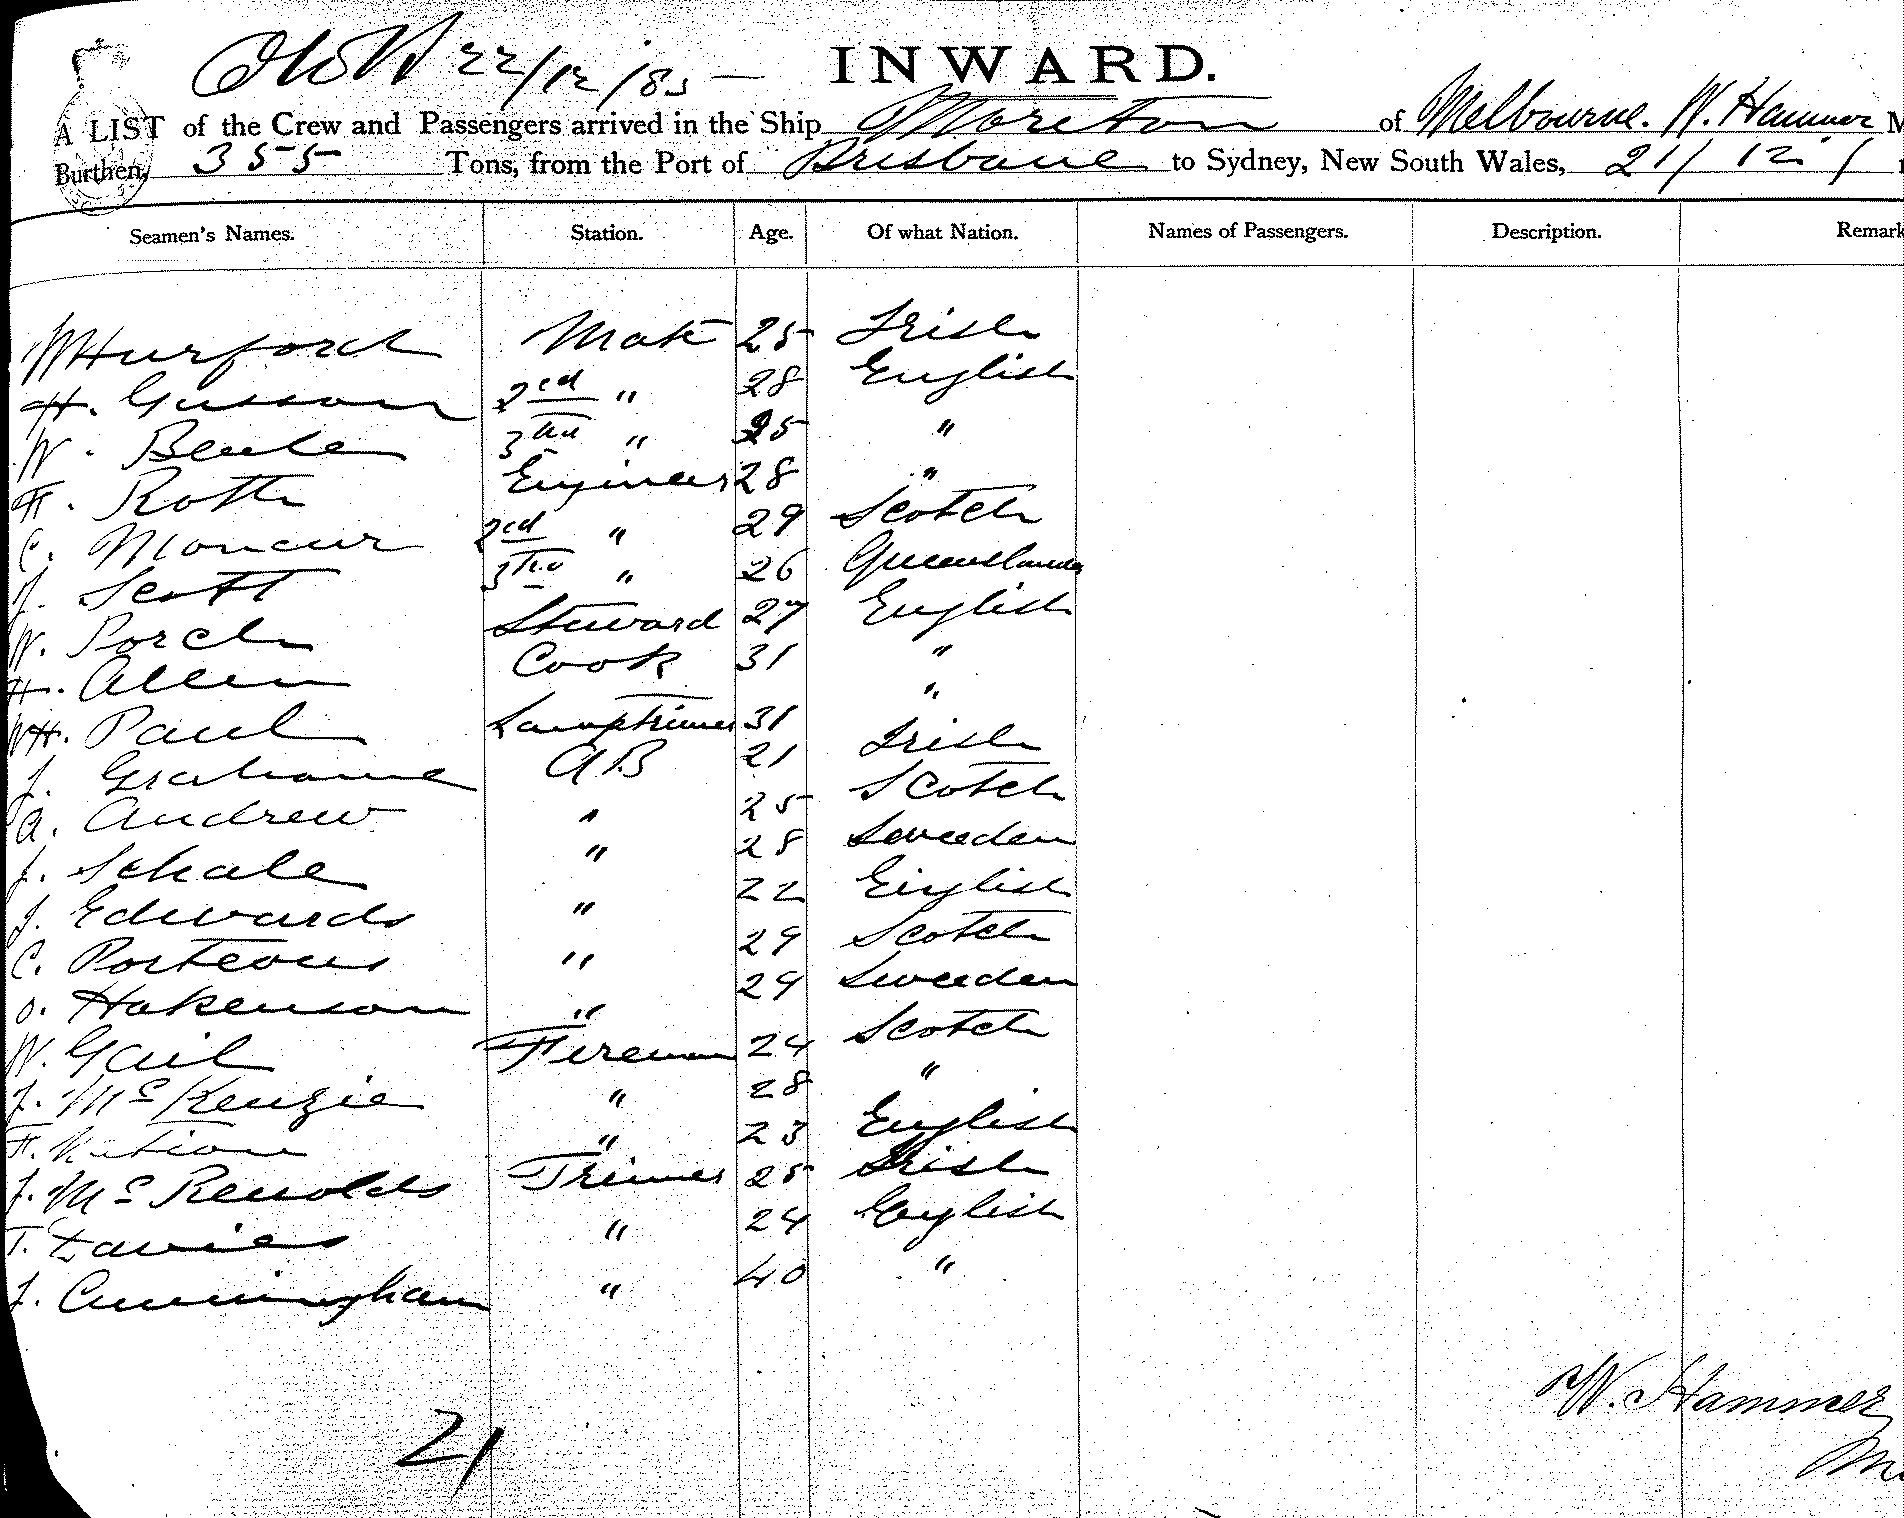 22/12/85 - INWARD.
A LIST of the Crew and Passengers arrived in the Ship Moreton of Melbourne. W. Hammer M
Burthen, 355 Tons, from the Port of Brisbane to Sydney, New South Wales, 21/12/
Seamen's Names. Station. Age. Of what Nation. Names of Passengers. Description. Remark
W Hurford Mate 25 Irish
H. Gusson 2ed " 28 English
W. Beale 3 " 25 "
F. Roth Engineer 28 "
C. Moncur 2ed " 29 Scotch
J. Scott 3 " 26 Queenslander
W. Porch Steward 27 English
H. Allen Cook 31 "
WH. Paul Lamptrimer 31 "
J. Grahame AB 21 Irish
A. Andrew " 25 Scotch
J. Schale " 28 Sweeden
J. Edwards " 22 English
C. Porteous " 29 Scotch
O. Hakenson " 29 Sweeden
W. Gail Fireman 24 Scotch
J. McKenzie " 28 "
F. " 23 English
J. McRenolds Trimer 25 Irish
T. Davies " 24 English
J. Cunningham " 40 "
W. Hammer
21